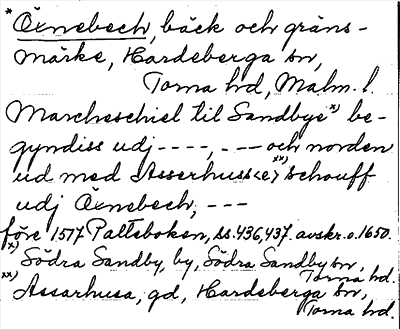 *Öxnebech, bäck och gräns-
märke, Hardeberga sn,
Torna hd, Malm. l.
Marcheschiel til Sandbye x) be-
gyndiss udj ----, --- och norden
ud med Asserhuss<e> xx) schouff
udj Öxnebech, ---
före 1577 Palteboken, ss. 436, 437. avskr. o. 1650.
x) Södra Sandby, by, Södra Sandby sn, Torna hd.
xx) Assarhusa, gd, Hardeberga sn,
Torna hd.